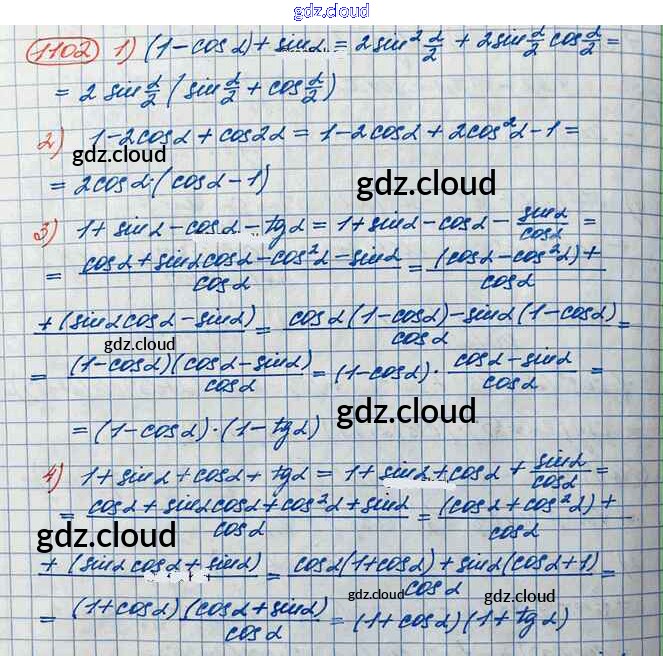 gdz.cloud
1102 1) (1-cos α) + sin α = 2 sin² α/2 + 2 sin α/2 cos α/2 =
= 2 sin α/2 (sin α/2 + cos α/2)
2) 1-2cos α + cos 2α = 1-2cos α + 2cos² α - 1 =
gdz.cloud
= 2cos α · (cos α - 1)
gdz.cloud
3) 1 + sin α - cos α - tg α = 1 + sin α - cos α - sin α/cos α =
= (cos α + sin α cos α - cos² α - sin α)/cos α = (cos α - cos² α) +/cos α
+ (sin α cos α - sin α)/ = (cos α (1-cos α) - sin α (1-cos α))/cos α =
gdz.cloud
= (1-cos α)(cos α - sin α)/cos α = (1-cos α) · (cos α - sin α)/cos α =
gdz.cloud
= (1-cos α) · (1-tg α)
4) 1 + sin α + cos α + tg α = 1 + sin α + cos α + sin α/cos α =
= (cos α + sin α cos α + cos² α + sin α)/cos α = (cos α + cos² α) +/cos α
gdz.cloud
+ (sin α cos α + sin α)/ = (cos α (1+cos α) + sin α (cos α + 1))/cos α =
gdz.cloud
gdz.cloud
= (1+cos α)(cos α + sin α)/cos α = (1+cos α)(1+tg α)